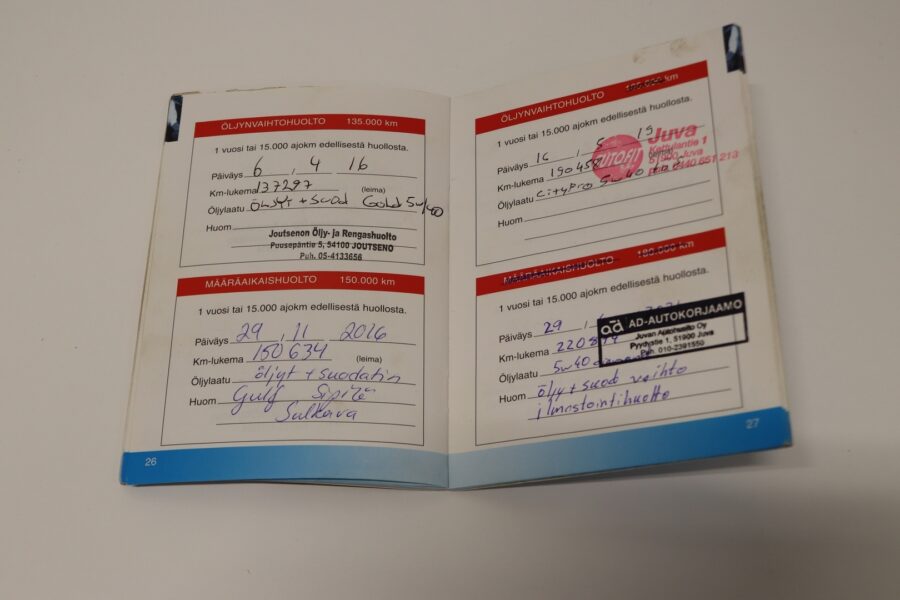 ÖLJYNVAIHTOHUOLTO 135.000 km
1 vuosi tai 15.000 ajokm edellisestä huollosta.
Päiväys 6 . 4 16
Km-lukema 137297 (leima)
Öljylaatu öljyt + suod Gold 5w/40
Huom
Joutsenon Öljy- ja Rengashuolto
Puusepäntie 5, 54100 JOUTSENO
Puh. 05-4133656
MÄÄRÄAIKAISHUOLTO 150.000 km
1 vuosi tai 15.000 ajokm edellisestä huollosta.
Päiväys 29 . 11 2016
Km-lukema 150634 (leima)
Öljylaatu öljyt + suodatin
Huom Gulf Sipilä
Sulkava
26
ÖLJYNVAIHTOHUOLTO 165.000 km
1 vuosi tai 15.000 ajokm edellisestä huollosta.
Päiväys 16 . 5 19
Km-lukema (leima)
Öljylaatu CityPro 5w40
Huom
AUTOFIT
Juva
51900 Juva
MÄÄRÄAIKAISHUOLTO 180.000 km
1 vuosi tai 15.000 ajokm edellisestä huollosta.
Päiväys 29
Km-lukema
Öljylaatu 5w40
Huom öljy + suod vaihto
ilmastointihuolto
ad AD-AUTOKORJAAMO
Juvan Autohuolto Oy
Pyydystie 1, 51900 Juva
Puh. 010-2391550
27